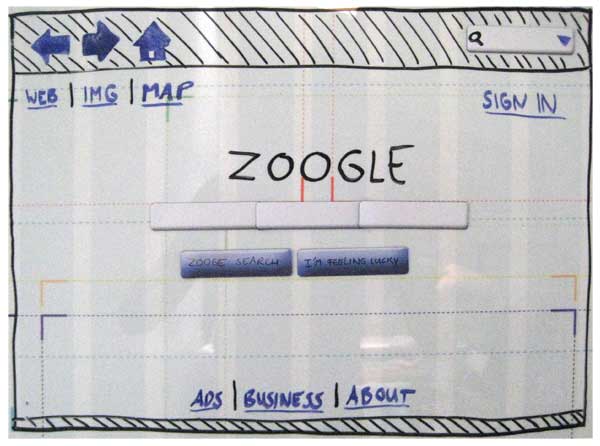 WEB | IMG | MAP
SIGN IN
ZOOGLE
ZOOGE SEARCH I'M FEELING LUCKY
ADS | BUSINESS | ABOUT